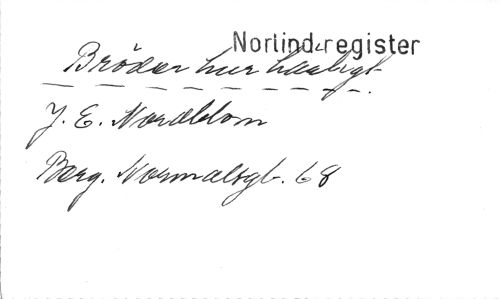 Norlind-register
Bröder hur härligt
J. E. Nordblom
Berg. Normalsgb. 68